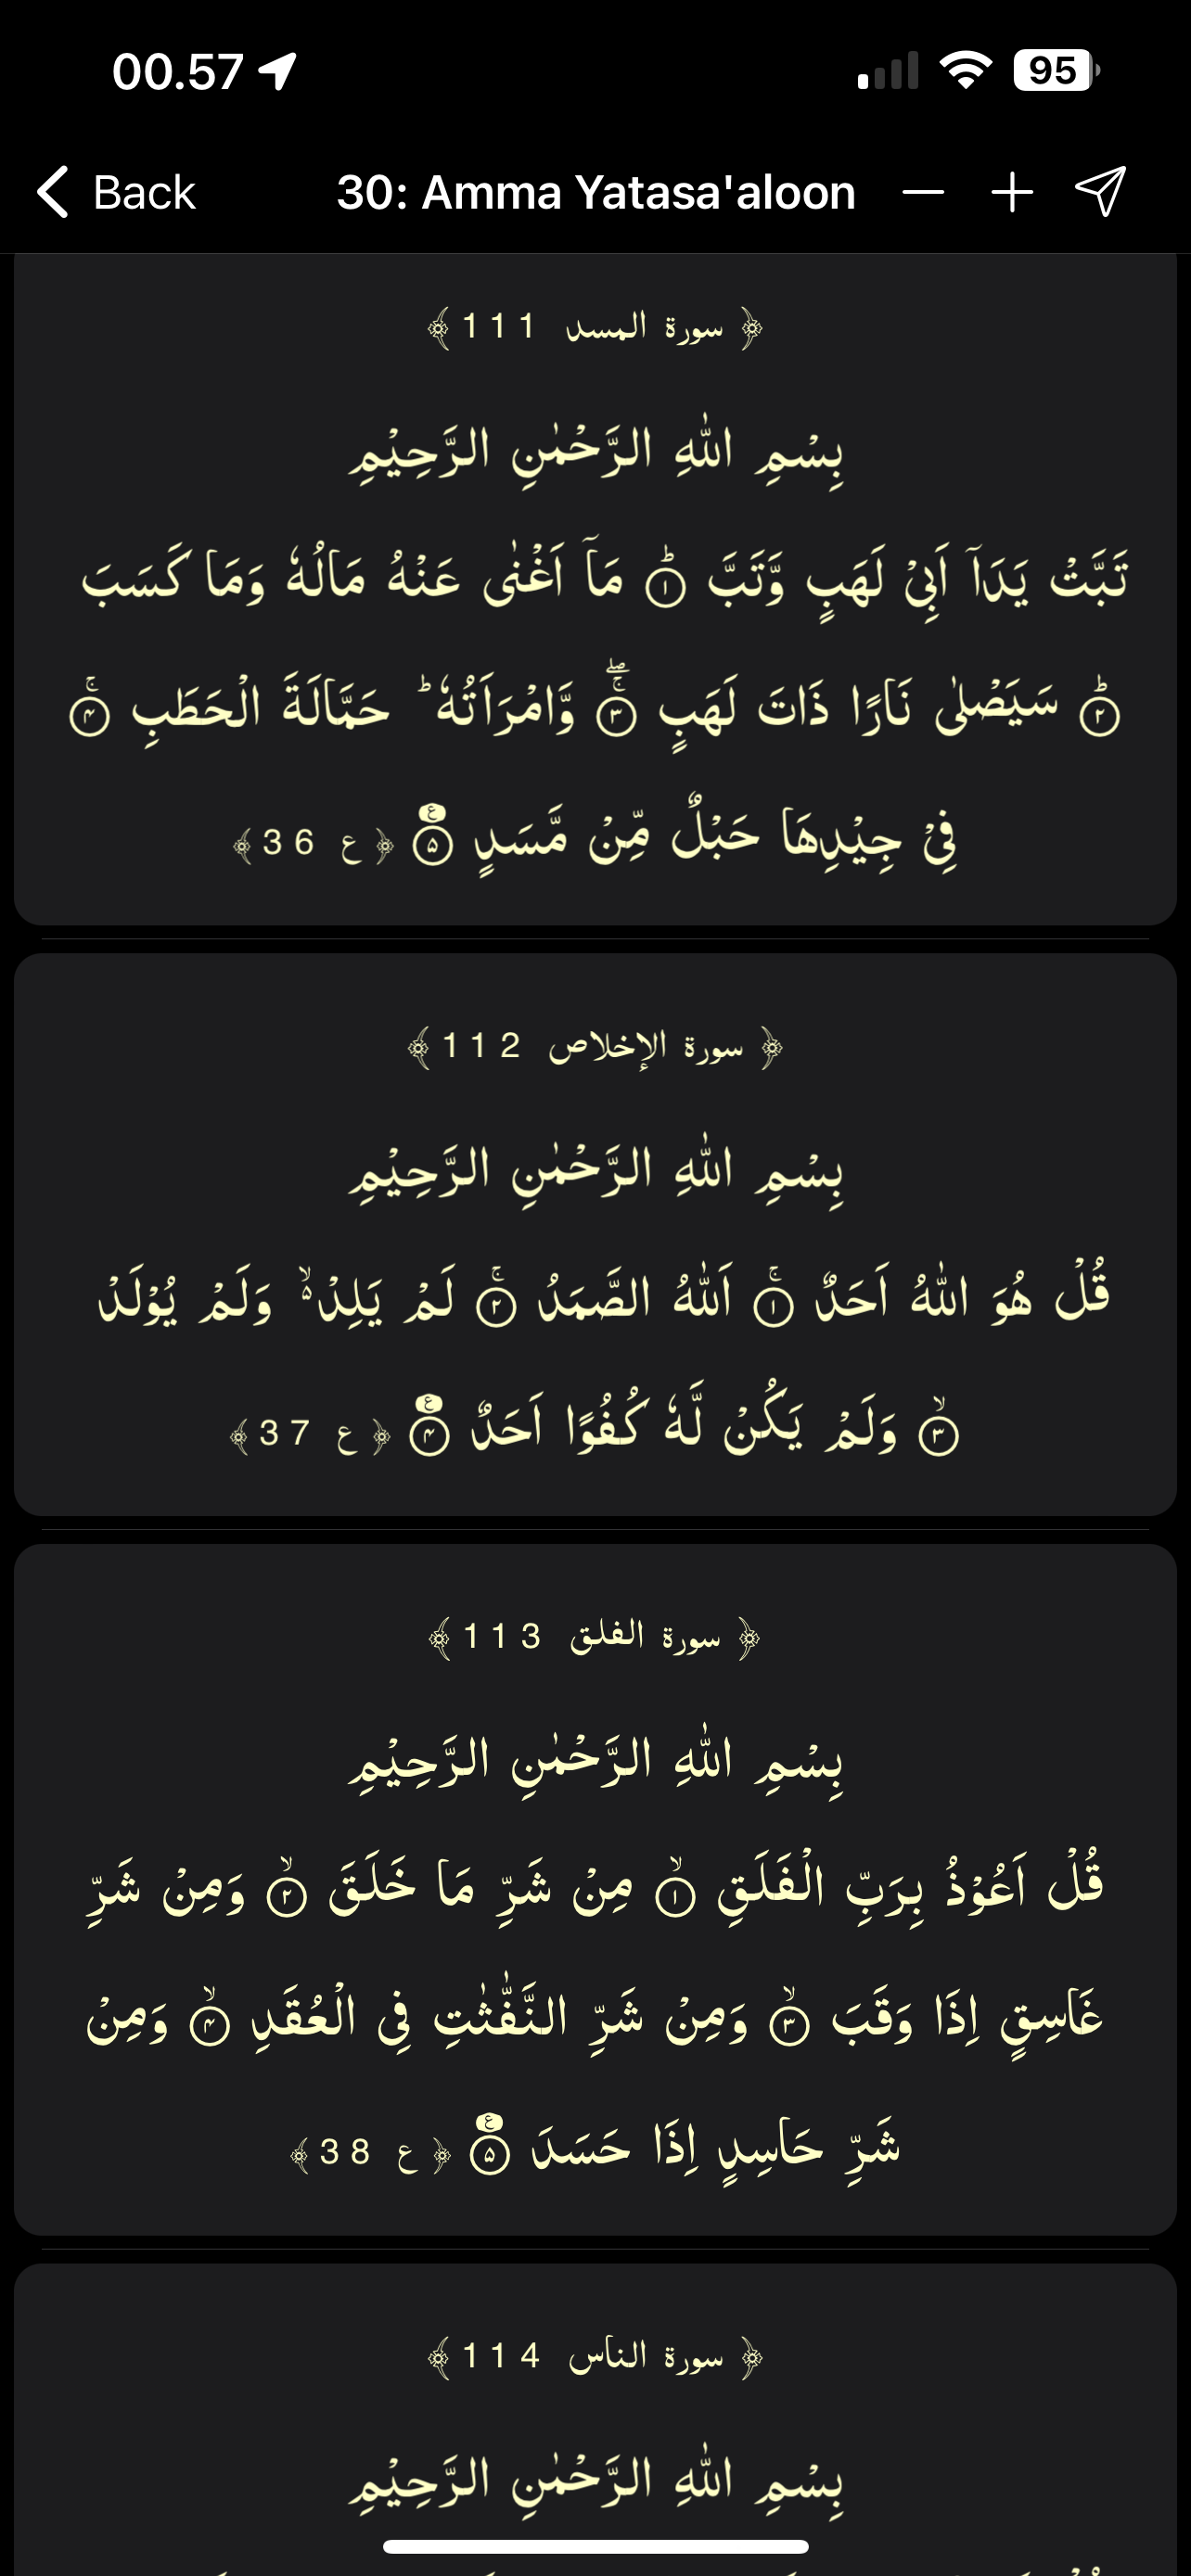 00.57
95
Back
30: Amma Yatasa'aloon
﴿ سورة المسد 111 ﴾
بِسْمِ اللّٰهِ الرَّحْمٰنِ الرَّحِيْمِ
تَبَّتْ يَدَاۤ اَبِىْ لَهَبٍ وَّتَبَّ ؕ‏﴿۱﴾ مَاۤ اَغْنٰى عَنْهُ مَالُهٗ وَمَا كَسَبَ
ؕ‏﴿۲﴾ سَيَصْلٰى نَارًا ذَاتَ لَهَبٍ ۖۚ‏﴿۳﴾ وَّامْرَاَتُهٗ ؕ حَمَّالَةَ الْحَطَبِ ۚ‏﴿۴﴾
فِىْ جِيْدِهَا حَبْلٌ مِّنْ مَّسَدٍ ﴿۵﴾ ﴿ ع 36 ﴾
﴿ سورة الإخلاص 112 ﴾
بِسْمِ اللّٰهِ الرَّحْمٰنِ الرَّحِيْمِ
قُلْ هُوَ اللّٰهُ اَحَدٌ ۚ‏﴿۱﴾ اَللّٰهُ الصَّمَدُ ۚ‏﴿۲﴾ لَمْ يَلِدْ ۙ۬ وَلَمْ يُوْلَدْ
ۙ‏﴿۳﴾ وَلَمْ يَكُنْ لَّهٗ كُفُوًا اَحَدٌ ﴿۴﴾ ﴿ ع 37 ﴾
﴿ سورة الفلق 113 ﴾
بِسْمِ اللّٰهِ الرَّحْمٰنِ الرَّحِيْمِ
قُلْ اَعُوْذُ بِرَبِّ الْفَلَقِ ۙ‏﴿۱﴾ مِنْ شَرِّ مَا خَلَقَ ۙ‏﴿۲﴾ وَمِنْ شَرِّ
غَاسِقٍ اِذَا وَقَبَ ۙ‏﴿۳﴾ وَمِنْ شَرِّ النَّفّٰثٰتِ فِى الْعُقَدِ ۙ‏﴿۴﴾ وَمِنْ
شَرِّ حَاسِدٍ اِذَا حَسَدَ ﴿۵﴾ ﴿ ع 38 ﴾
﴿ سورة الناس 114 ﴾
بِسْمِ اللّٰهِ الرَّحْمٰنِ الرَّحِيْمِ